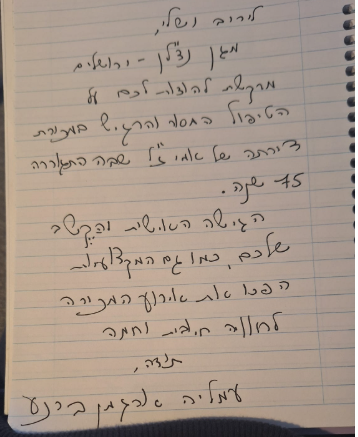 לירוב ושלי,
מגן נדל"ן - ירושלים
מבקשת להודות לכם על
הטיפול החסר והרגיש במכירת
דירתה של אמי ז"ל שבה התגוררה
75 שנה.
הגישה האישית והקשב
שלכם, כמו גם המקצועיות
הפכו את אירוע המכירה
לחוויה חיובית וחמה
תודה,
עמליה ארגמן ברנע